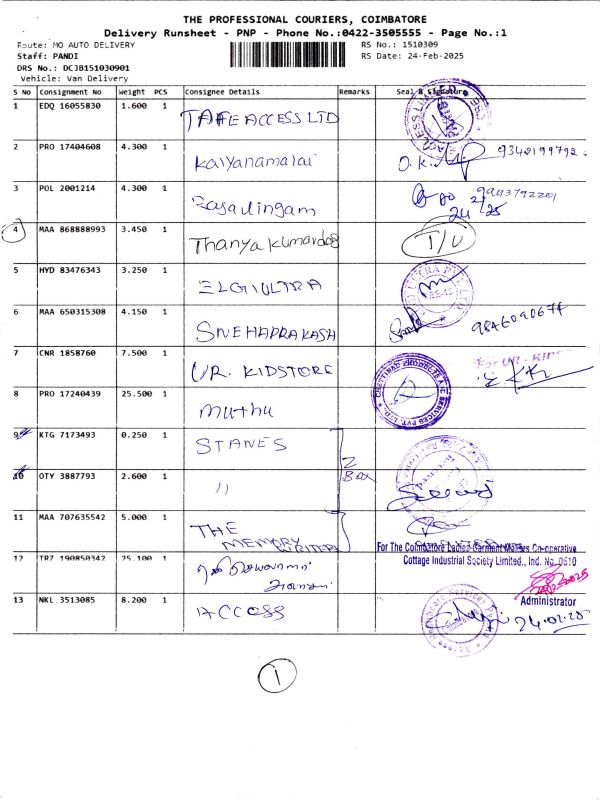 THE PROFESSIONAL COURIERS, COIMBATORE
Delivery Runsheet - PNP - Phone No.:0422-3505555 - Page No.:1
Route: MO AUTO DELIVERY RS No.: 1510309
Staff: PANDI RS Date: 24-Feb-2025
DRS No.: DCJB151030901
Vehicle: Van Delivery
S No Consignment No Weight PCS Consignee Details Remarks Seal & Signature
1 EDQ 16055830 1.600 1 TAFE ACCESS LTD
2 PRO 17404608 4.300 1 Kalyanamalai O.K. 9342199792
3 POL 2001214 4.300 1 Rasalingam 9943792201
24/2/25
4 MAA 868888993 3.450 1 Thanyakumar T/U
5 HYD 83476343 3.250 1 ELGI ULTRA
6 MAA 650315308 4.150 1 SNEHAPRAKASH
7 CNR 1858760 7.500 1 UR. KIDSTORE For UR - KIDS
8 PRO 17240439 25.500 1 Muthu
9 KTG 7173493 0.250 1 STANES
2 Box
10 OTY 3887793 2.600 1 〃
11 MAA 707635542 5.000 1 THE MEMORY WRITER
For The Coimbatore Ladies Garment Makers Co-operative
12 TRZ 190850342 25.100 1
Cottage Industrial Society Limited., Ind. No.0610
24/02/2025
Administrator
13 NKL 3513085 8.200 1 ACCESS
24.02.25
1